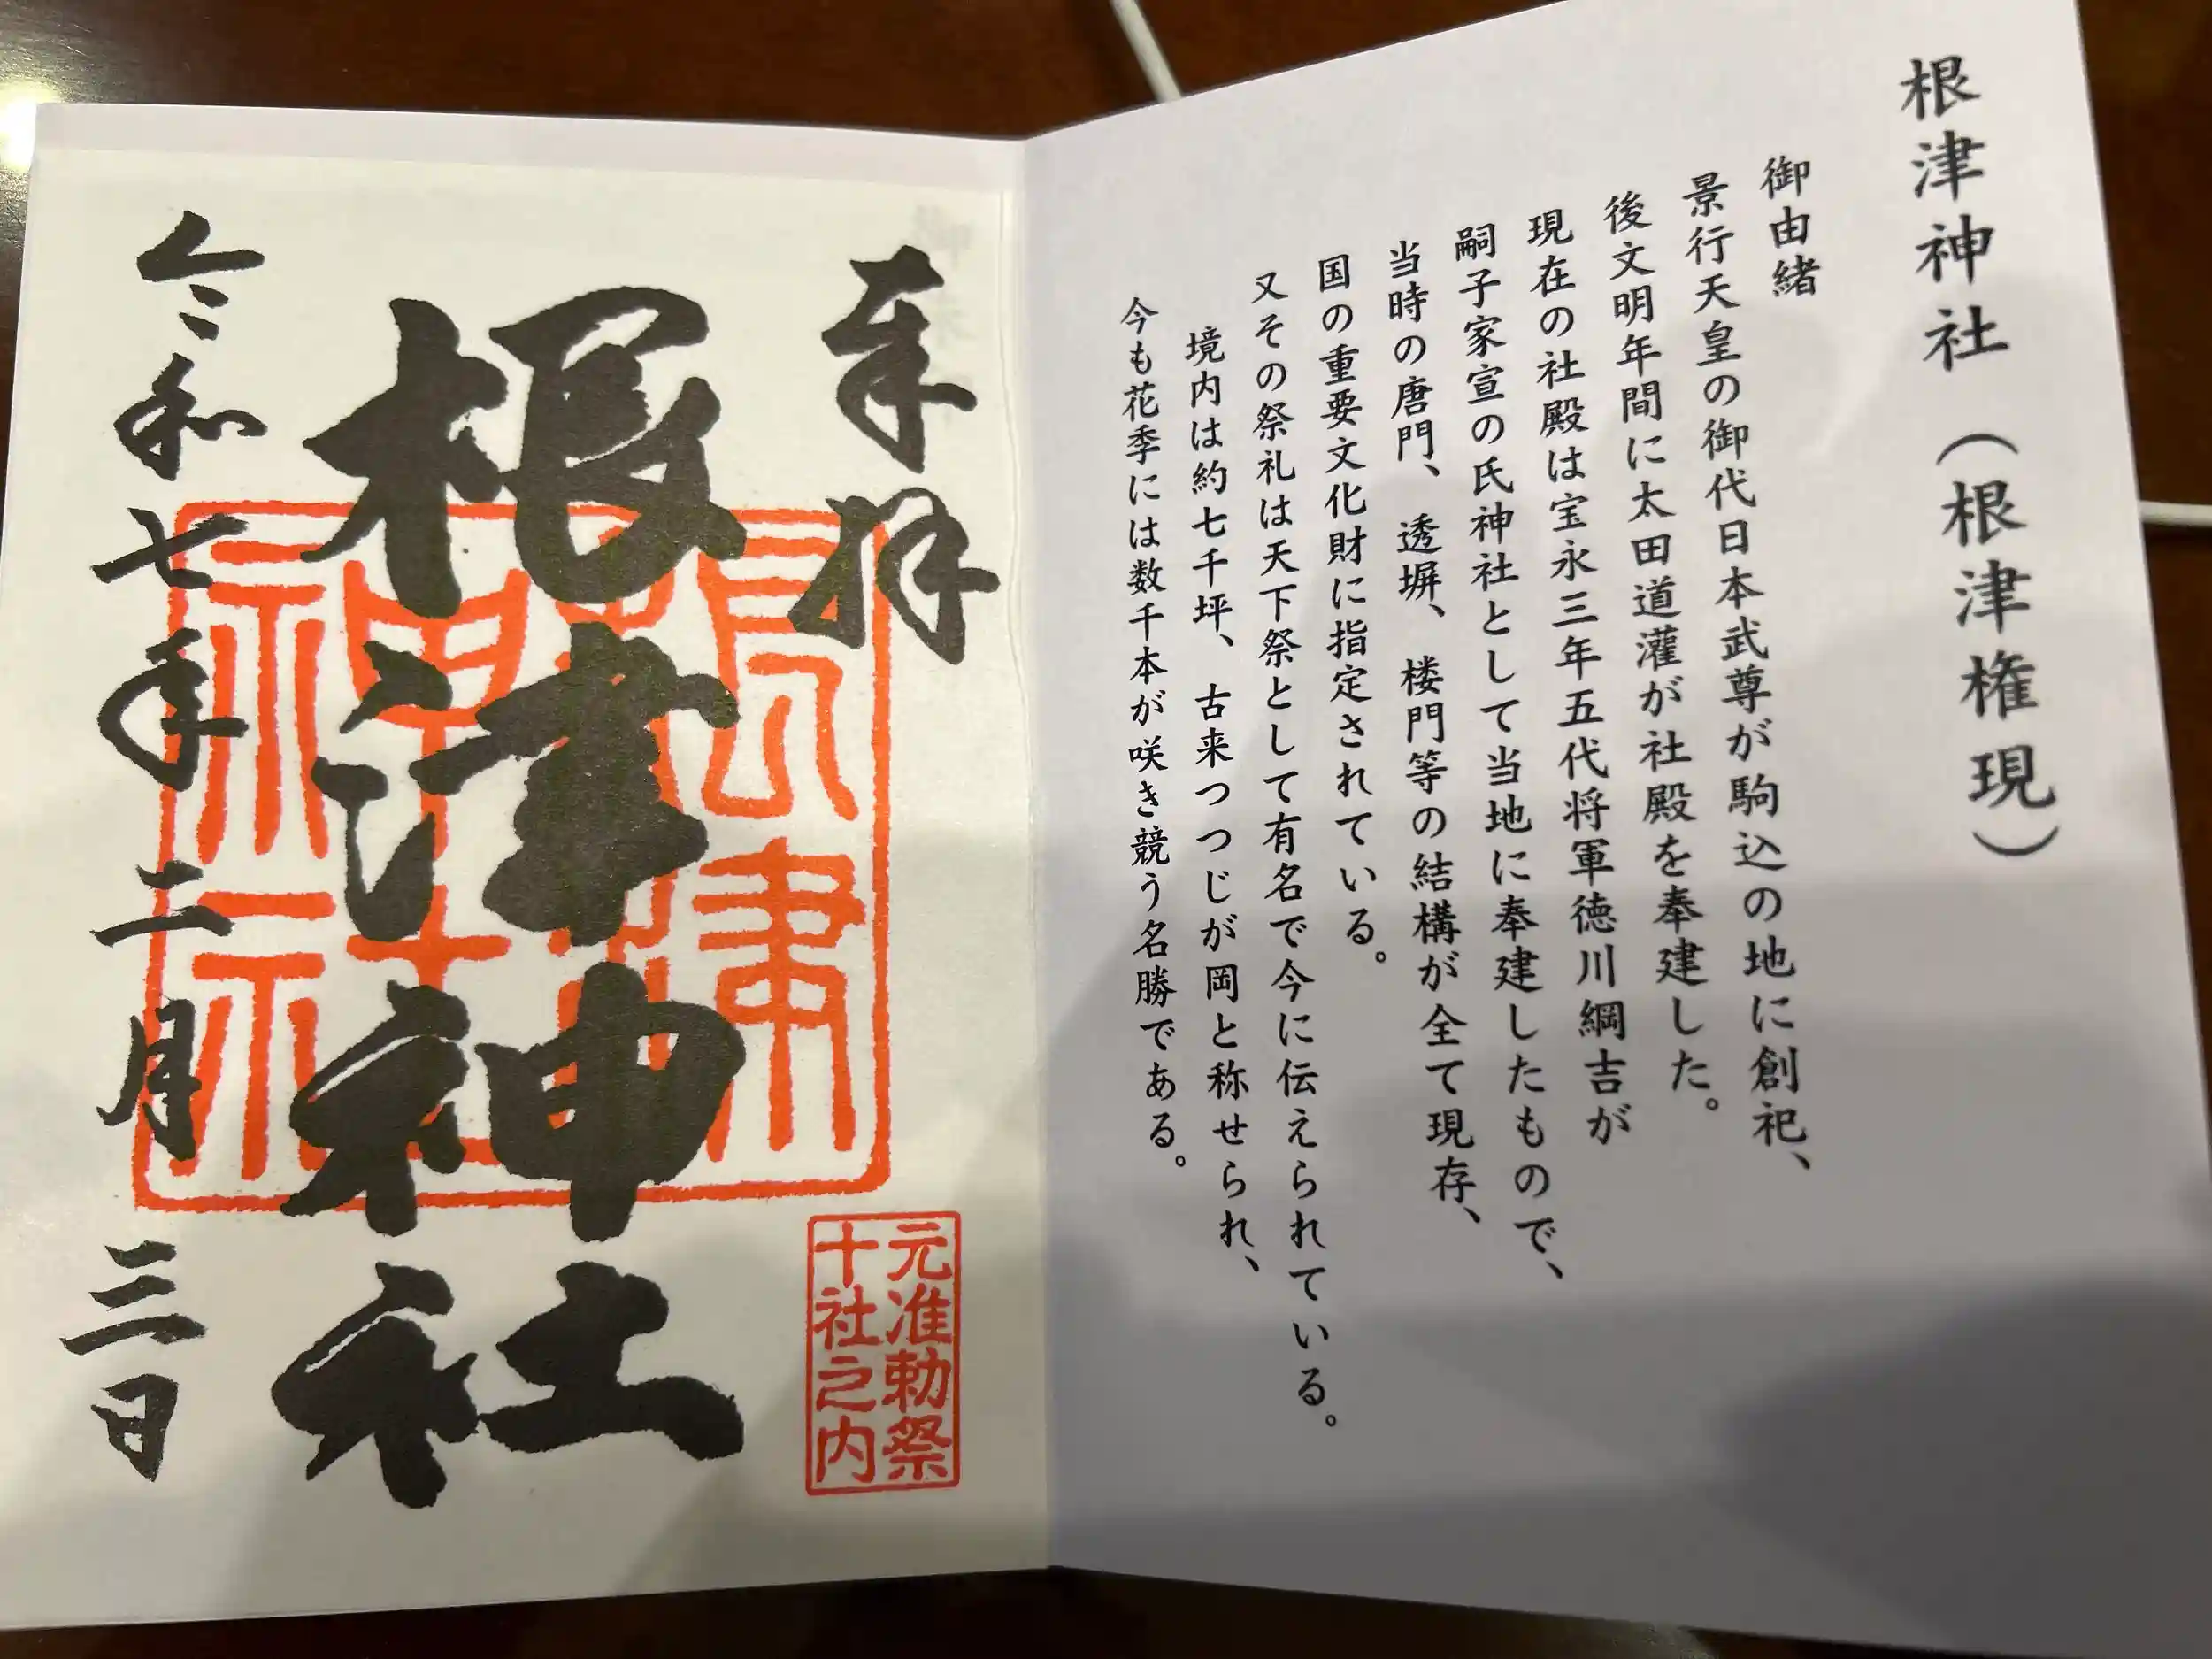 根津神社（根津権現）
御由緒
景行天皇の御代日本武尊が駒込の地に創祀、
後文明年間に太田道灌が社殿を奉建した。
現在の社殿は宝永三年五代将軍徳川綱吉が
嗣子家宣の氏神社として当地に奉建したもので、
当時の唐門、透塀、楼門等の結構が全て現存、
国の重要文化財に指定されている。
又その祭礼は天下祭として有名で今に伝えられている。
境内は約七千坪、古来つつじが岡と称せられ、
今も花季には数千本が咲き競う名勝である。
奉拝
元准勅祭
十社之内
根津神社
根津
神社
令和七年二月三日